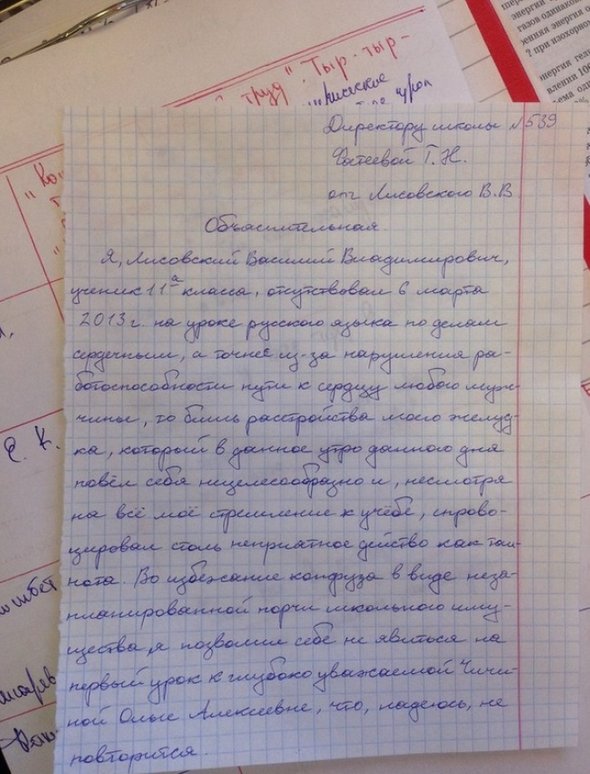 труд". Тыр-тыр-
урок
Директору школы №539
Фатеевой Т.Н.
от Лисовского В.В.
Объяснительная.
Я, Лисовский Василий Владимирович,
ученик 11а класса, отсутствовал 6 марта
2013г. на уроке русского языка по делам
сердечным, а точнее из-за нарушения ра-
ботоспособности пути к сердцу любого муж-
чины, то бишь расстройства моего желуд-
ка, который в данное утро данного дня
повёл себя нецелесообразно и, несмотря
на всё моё стремление к учёбе, спрово-
цировал столь неприятное действо как тош-
нота. Во избежание конфуза в виде неза-
планированной порчи школьного иму-
щества, я позволил себе не явиться на
первый урок к глубоко уважаемой Чичи-
ной Ольге Алексеевне, что, надеюсь, не
повторится.
Е. К.
энергии
газов одинаков
? при изохорно